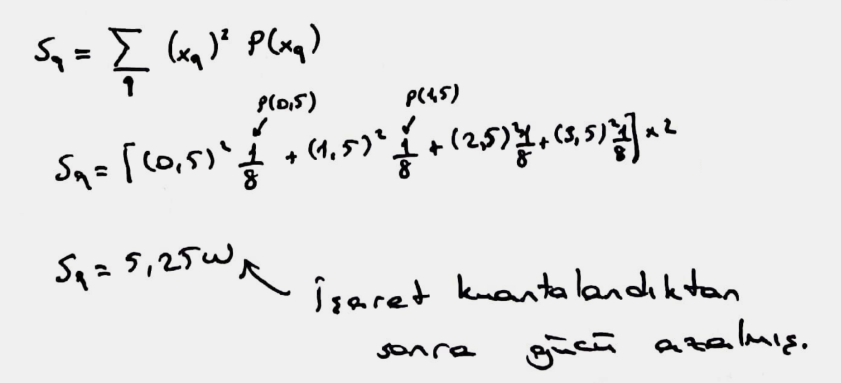 S_q = ∑_q (x_q)² P(x_q)
P(0,5) P(1,5)
S_q = [(0,5)² 1/8 + (1,5)² 1/8 + (2,5)² 1/8 + (3,5)² 1/8] × 2
S_q = 5,25W
İşaret kuantalandıktan
sonra gücü azalmış.